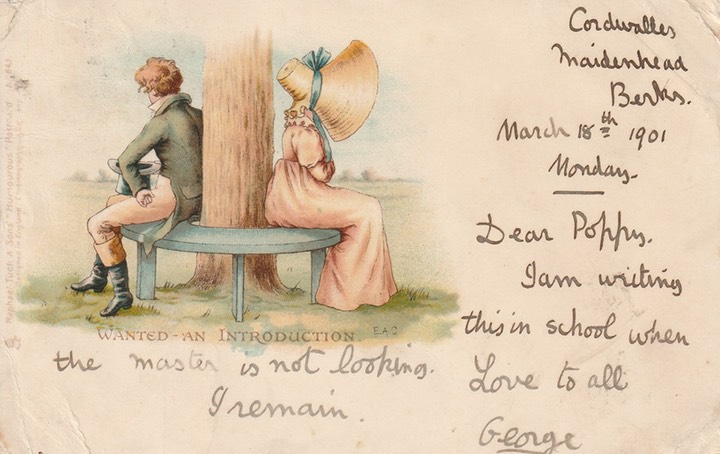 Cordwalles
Maidenhead
Berks.
March 18th 1901
Monday.
Dear Poppy.
I am writing
this in school when
the master is not looking.
I remain.
Love to all
George
WANTED-AN INTRODUCTION
E.A.C
Raphael Tuck & Sons "Humorous" Postcard